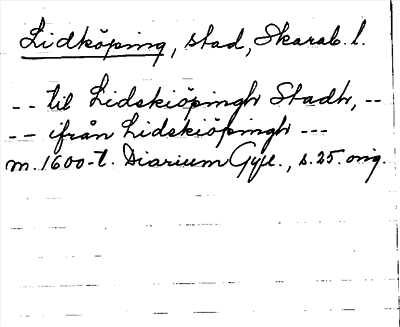 Lidköping, stad, Skarab. l.
-- til Lidskiöpingh Stadh, --
-- ifrån Lidskiöpingh ---
m. 1600-t. Diarium Gyll., s. 25. orig.